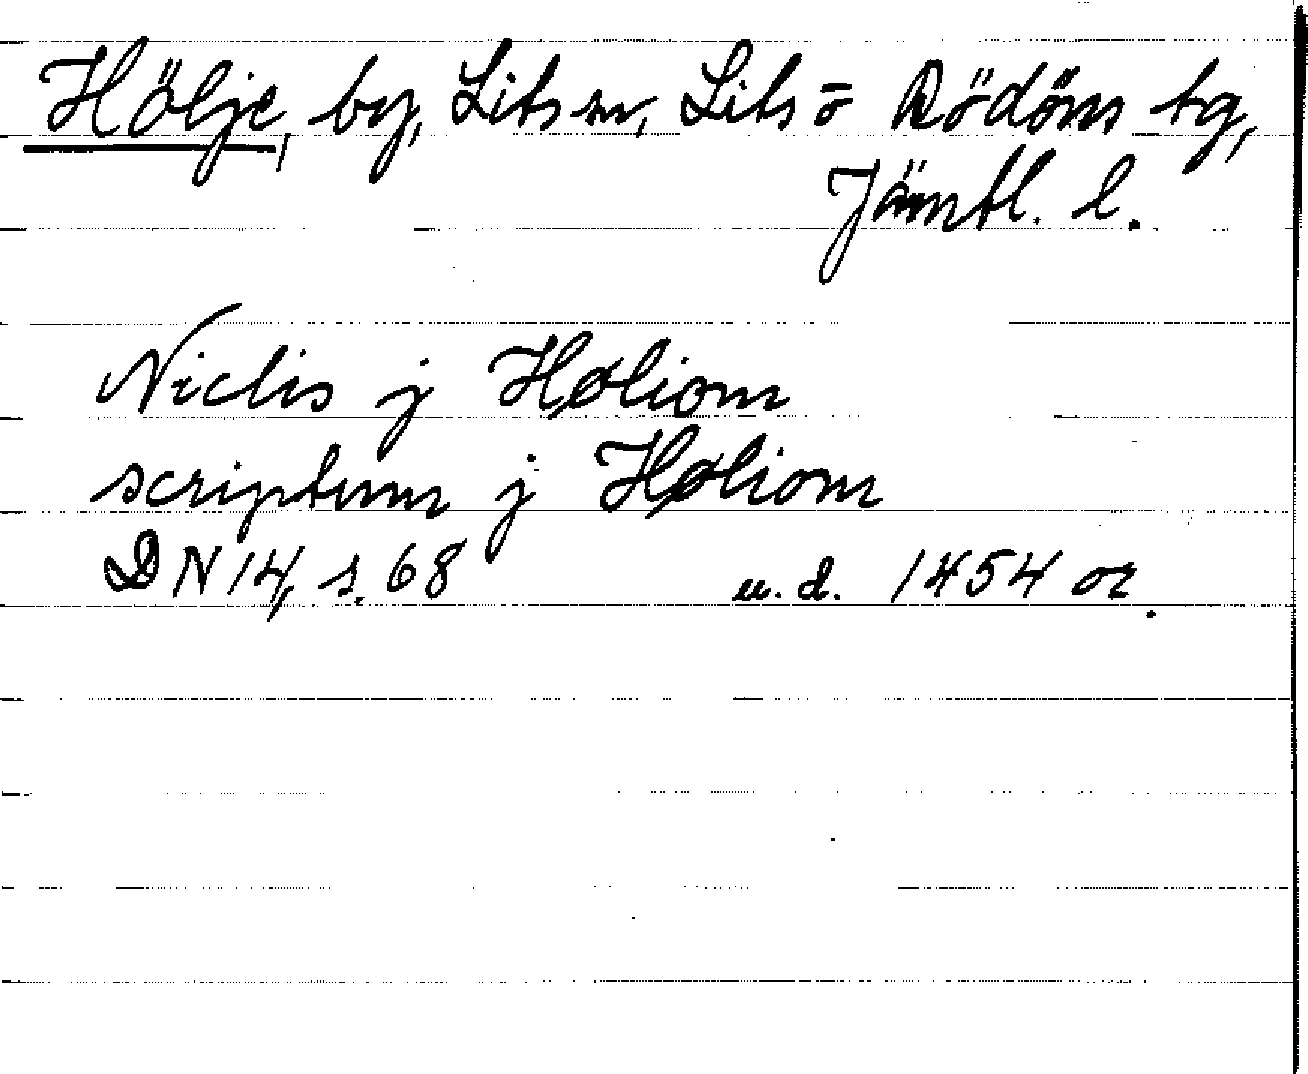 Hölje, by, Lits sn, Lits o Rödöns tg,
Jämtl. l.
Niclis j Høliom
scriptum j Høliom
DN 14, s. 68 u. d. 1454 or.